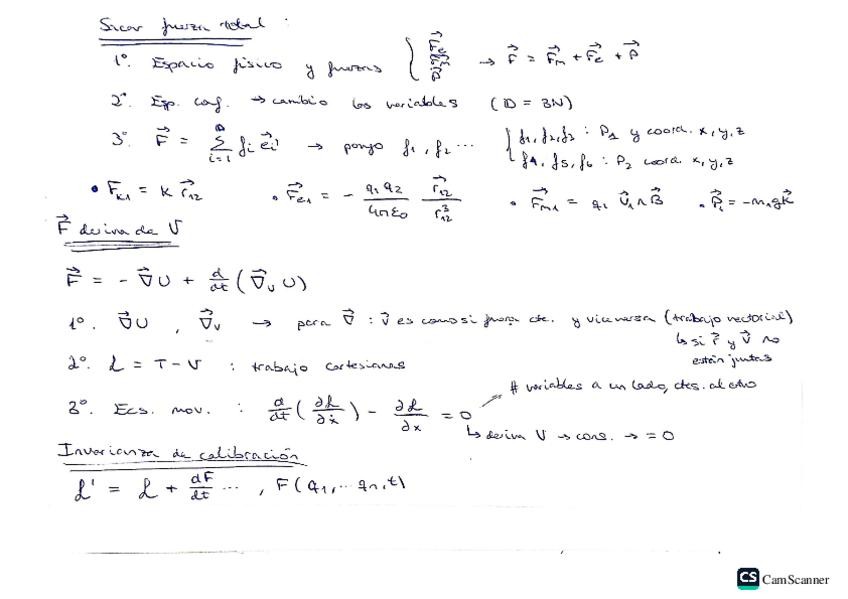 Sacar fuerza total :
1º. Espacio físico y fuerzas { → F⃗ = F⃗m + F⃗e + P⃗
2º. Esp. conf. → cambio las variables (D = 3N)
3º. F⃗ = Σ_{i=1}^{D} f_i e⃗_i → pongo f1, f2 ... { f1, f2, f3 : P1 y coord. x, y, z
f4, f5, f6 : P2 coord. x, y, z
• F_K1 = K r⃗12 • F⃗e1 = - q1 q2 / 4πε0 r⃗12 / r12^3 • F⃗m1 = q1 v⃗1 ∧ B⃗ • P⃗1 = -m1 g k⃗
F⃗ deriva de U
F⃗ = - ∇⃗U + d/dt (∇⃗v U)
1º. ∇⃗U , ∇⃗v → para ∇⃗ : v⃗ es como si fuera cte. y viceversa (trabajo vectorial)
↳ si r⃗ y v⃗ no
están juntas
2º. L = T - U : trabajo cartesianas
# variables a un lado, ctes. al otro
3º. Ecs. mov. : d/dt (∂L/∂ẋ) - ∂L/∂x = 0
↳ deriva U → cons. → = 0
Invarianza de calibración
L' = L + dF/dt ... , F(q1, ... qn, t)
CS CamScanner